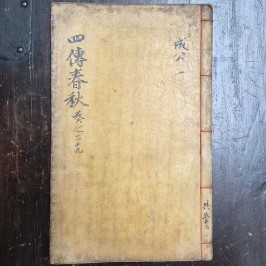 四傳春秋
卷之二十九
成公一